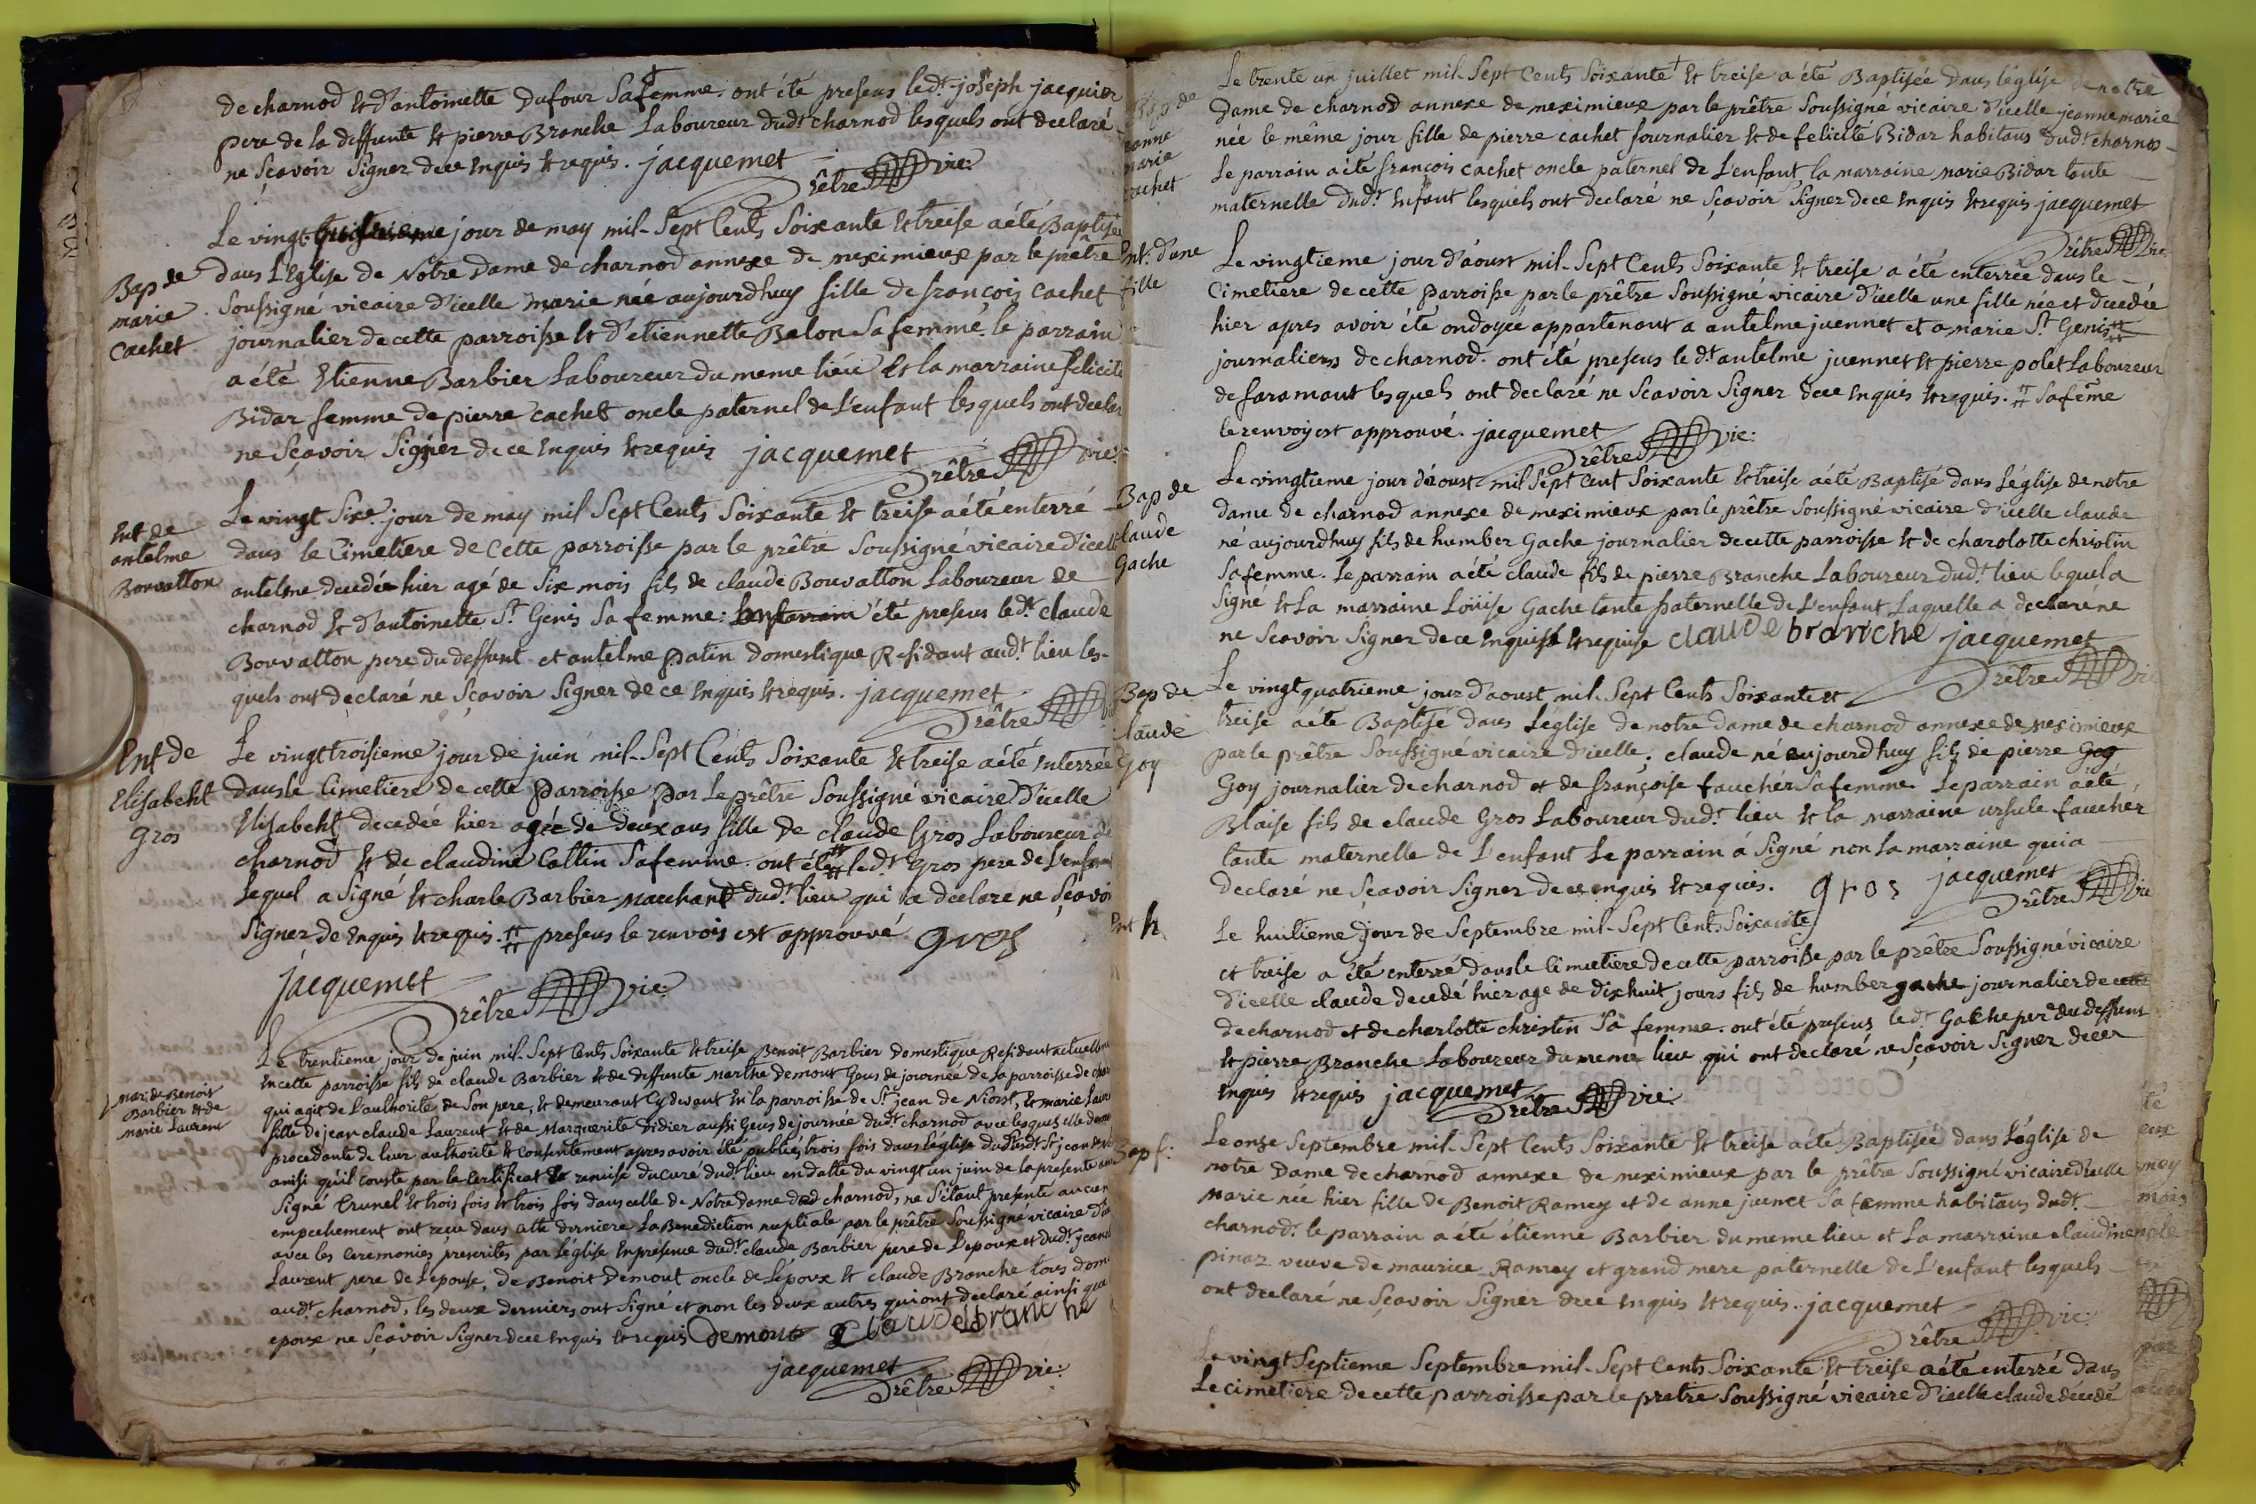 de charnod et d'antoinette Dufour Sa femme. ont été presens led.t joseph jacquier
pere de la deffunte et pierre Branche Laboureur dud.t charnod lesquels ont declaré
ne Sçavoir Signer de ce enquis et requis. jacquemet
Prêtre vic:
Le vingt jour de may mil-Sept Cents Soixante et treise a été Baptisée
Bap de
marie
Cachet
dans l'Eglise de Notre Dame de charnod annexe de meximieux par le prêtre
Soussigné vicaire d'icelle marie née aujourdhuy fille de françois Cachet
journalier de cette parroisse et d'etiennette Balon Sa femme. le parrain
a été Etienne Barbier Laboureur du meme lieu et la marraine felicité
Bidar femme de pierre cachet oncle paternel de L'enfant lesquels ont declaré
ne Sçavoir Signer de ce enquis et requis jacquemet
Prêtre vic:
Ent de
antelme
Bouvatton
Le vingt Sixe. jour de may mil Sept Cents Soixante et treise a été enterré
dans le Cimetiere de Cette parroisse par le prêtre Soussigné vicaire d'icelle
antelme decedée hier agé de Six mois fils de claude Bouvatton Laboureur de
charnod et d'antoinette S.t Genis Sa femme: été presens led.t claude
Bouvatton pere du deffunt et antelme patin domestique Residant aud.t lieu les-
quels ont declaré ne Sçavoir Signer de ce enquis et requis. jacquemet
Prêtre
Ent de
Elisabeht
Gros
Le vingt troisieme jour de juin mil-Sept Cents Soixante et treise a été enterrée
dans le Cimetiere de cette Parroisse Par Le prêtre Soussigné vicaire D'icelle
Elisabeht decedée hier agée de deux ans fille de claude Gros Laboureur de
charnod et de claudine Cattin Sa femme. ont été # led.t Gros pere de L'enfant
Lequel a Signé et charle Barbier Marchand dud.t lieu qui a declaré ne Sçavoir
Signer de enquis et requis. # presens le renvois est approuvé Gros
jacquemet
Prêtre vic:
mar: de Benoit
Barbier et de
marie Laurent
Le trentieme jour de juin mil-Sept Cents Soixante et treise Benoit Barbier Domestique Residant actuellement
en cette parroisse fils de claude Barbier et de deffunte Marthe Demont Gens de journée de la parroisse de
qui agit de L'authorité de Son pere, et demeurant Cy devant en la parroisse de St jean de Niost, et marie Laurent
fille de jean claude Laurent et de Marguerite Didier aussi Gens de journée dud.t charnod avec lesquels elle demeure
procedante de leur authorité et Consentement apres avoir été publiés trois fois dans l'eglise dud.t St jean
ainsi qu'il conste par le Certificat de remise du Curé dud.t lieu en datte du vingt un juin de la presente année
Signé Crunel et trois fois dans celle de Notre Dame dud charnod, ne S'étant presenté aucun
empechement ont reçu dans cette derniere La Benediction nuptiale par le prêtre Soussigné vicaire
avec les Ceremonies prescrites par l'église En presence dud.t claude Barbier pere de L'epoux et dud.t jean
Laurent pere de L'epouse, de Benoit Demont oncle de L'époux et claude Branche tous
aud.t charnod, les deux derniers ont Signé et non les deux autres qui ont declaré ainsi que
epoux ne Sçavoir Signer de ce enquis et requis Demont Claudebranche
jacquemet
Prêtre vic:
Bap de
jeanne
marie
cachet
Le trente un juillet mil-Sept Cents Soixante et treise a été Baptisée dans l'église de notre
Dame de charnod annexe de meximieux par le prêtre Soussigné vicaire d'icelle jeanne marie
née le même jour fille de pierre cachet journalier et de felicité Bidar habitans dud.t charnod
Le parrain a été françois cachet oncle paternel de L'enfant la marraine marie Bidar tante
maternelle dud.t Enfant lesquels ont declaré ne Sçavoir Signer de ce enquis et requis jacquemet
Prêtre vic
Ent. d'une
fille
Le vingtieme jour d'aoust mil-Sept Cents Soixante et treise a été enterrée dans le
Cimetiere de cette Parroisse par le prêtre Soussigné vicaire d'icelle une fille née et decedée
hier apres avoir été ondoyée appartenant a antelme juennet et a marie S.t Genis #
journaliers de charnod. ont été presens le d.t antelme juennet et pierre polet Laboureur
de faramant lesquels ont declaré ne Sçavoir Signer de ce enquis et requis. # Sa feme
le renvoy est approuvé. jacquemet
Prêtre vic:
Bap de
claude
Gache
Le vingtieme jour d'aoust mil Sept Cent Soixante et treise a été Baptisé dans L'église de notre
Dame de charnod annexe de meximieux par le prêtre Soussigné vicaire d'icelle claude
né aujourdhuy fils de humber Gache journalier de cette parroisse et de charolotte christin
Sa femme. Le parrain a été claude fils de pierre Branche Laboureur dud.t lieu lequel a
Signé et La marraine Loüise Gache tante paternelle de L'enfant Laquelle a declaré ne
ne Scavoir Signer de ce enquise et requise claude branche jacquemet
Prêtre vic
Bap de
claude
Goy
Le vingt quatrieme jour d'aoust mil-Sept Cents Soixante et
treise a été Baptisé dans L'église de notre Dame de charnod annexe de meximieux
par le prêtre Soussigné vicaire d'icelle; claude né aujourdhuy fils de pierre Goy
Goy journalier de charnod et de françoise fauchér Sa femme. Le parrain a été
Blaise fils de claude Gros Laboureur dud.t lieu et la marraine ursule fauchér
tante maternelle de L'enfant Le parrain a Signé non La marraine qui a
declaré ne Sçavoir Signer de ce enquis et requis. gros jacquemet
Prêtre vic
Ent h
Le huitieme jour de Septembre mil-Sept Cents Soixante
et treise a été enterré dans le Cimetiere de cette parroisse par le prêtre Soussigné vicaire
d'icelle claude decedé hier age de dixhuit jours fils de humber gache journalier de cette
de charnod et de charlotte christin Sa femme. ont été presens led.t Gache pere du deffunt
et pierre Branche Laboureur du meme lieu qui ont declaré ne Sçavoir Signer de ce
enquis et requis jacquemet
Prêtre vic:
Bap f:
Le onse Septembre mil-Sept Cents Soixante et treise a été Baptisée dans L'église de
notre Dame de charnod annexe de meximieux par le prêtre Soussigné vicaire d'icelle
Marie née hier fille de Benoit Ramey et de anne juenet Sa femme habitans dud.t
charnod. le parrain a été étienne Barbier du meme lieu et La marraine claudine
pinaz veuve de maurice Ramey et grand mere paternelle de L'enfant lesquels
ont declaré ne Sçavoir Signer de ce enquis et requis. jacquemet
Prêtre vic:
Le vingt Septieme Septembre mil-Sept Cents Soixante et treise a été enterré dans
Le cimetiere de cette parroisse par le pretre Soussigné vicaire d'icelle claude decedé